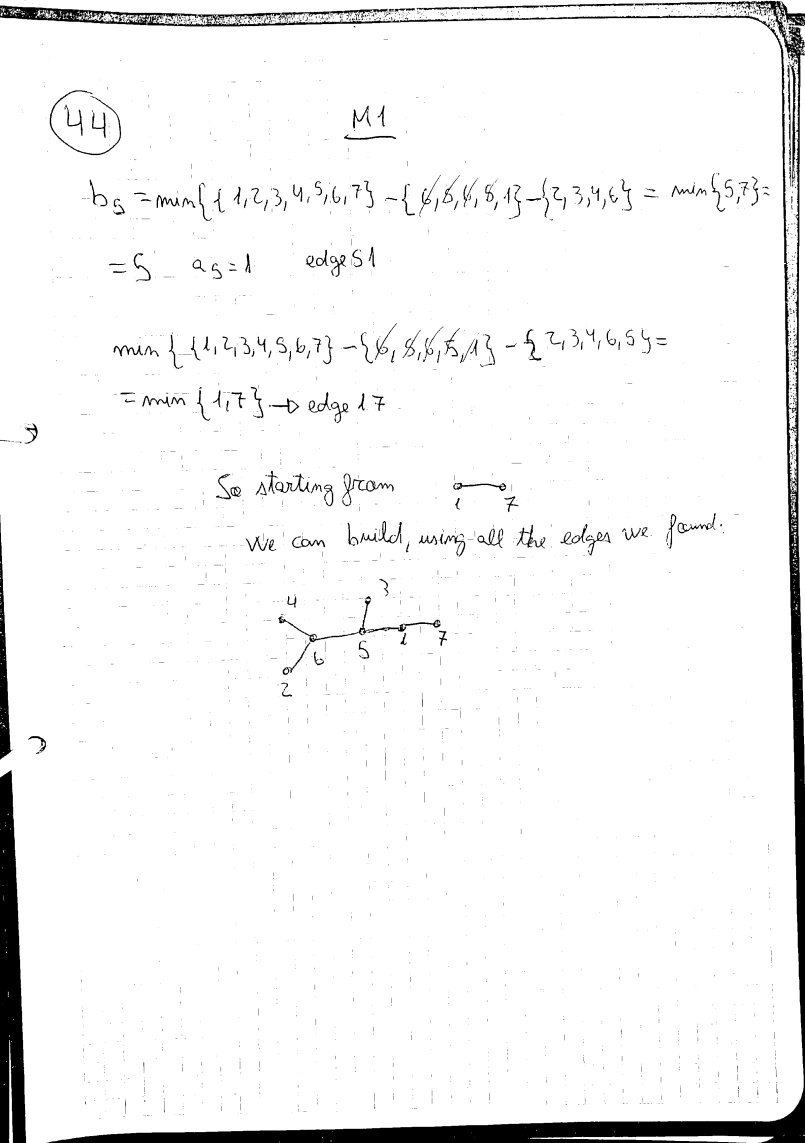 44
M1
b5 = min{ { 1,2,3,4,5,6,7} - {6,5,6,5,1} - {2,3,4,6} = min{5,7} =
= 5 a5 = 1 edge 51
min { {1,2,3,4,5,6,7} - {6,5,6,5,1} - { 2,3,4,6,5} =
= min {1,7} → edge 17
So starting from
1 7
We can build, using all the edges we found:
4 3
6 5 1 7
2